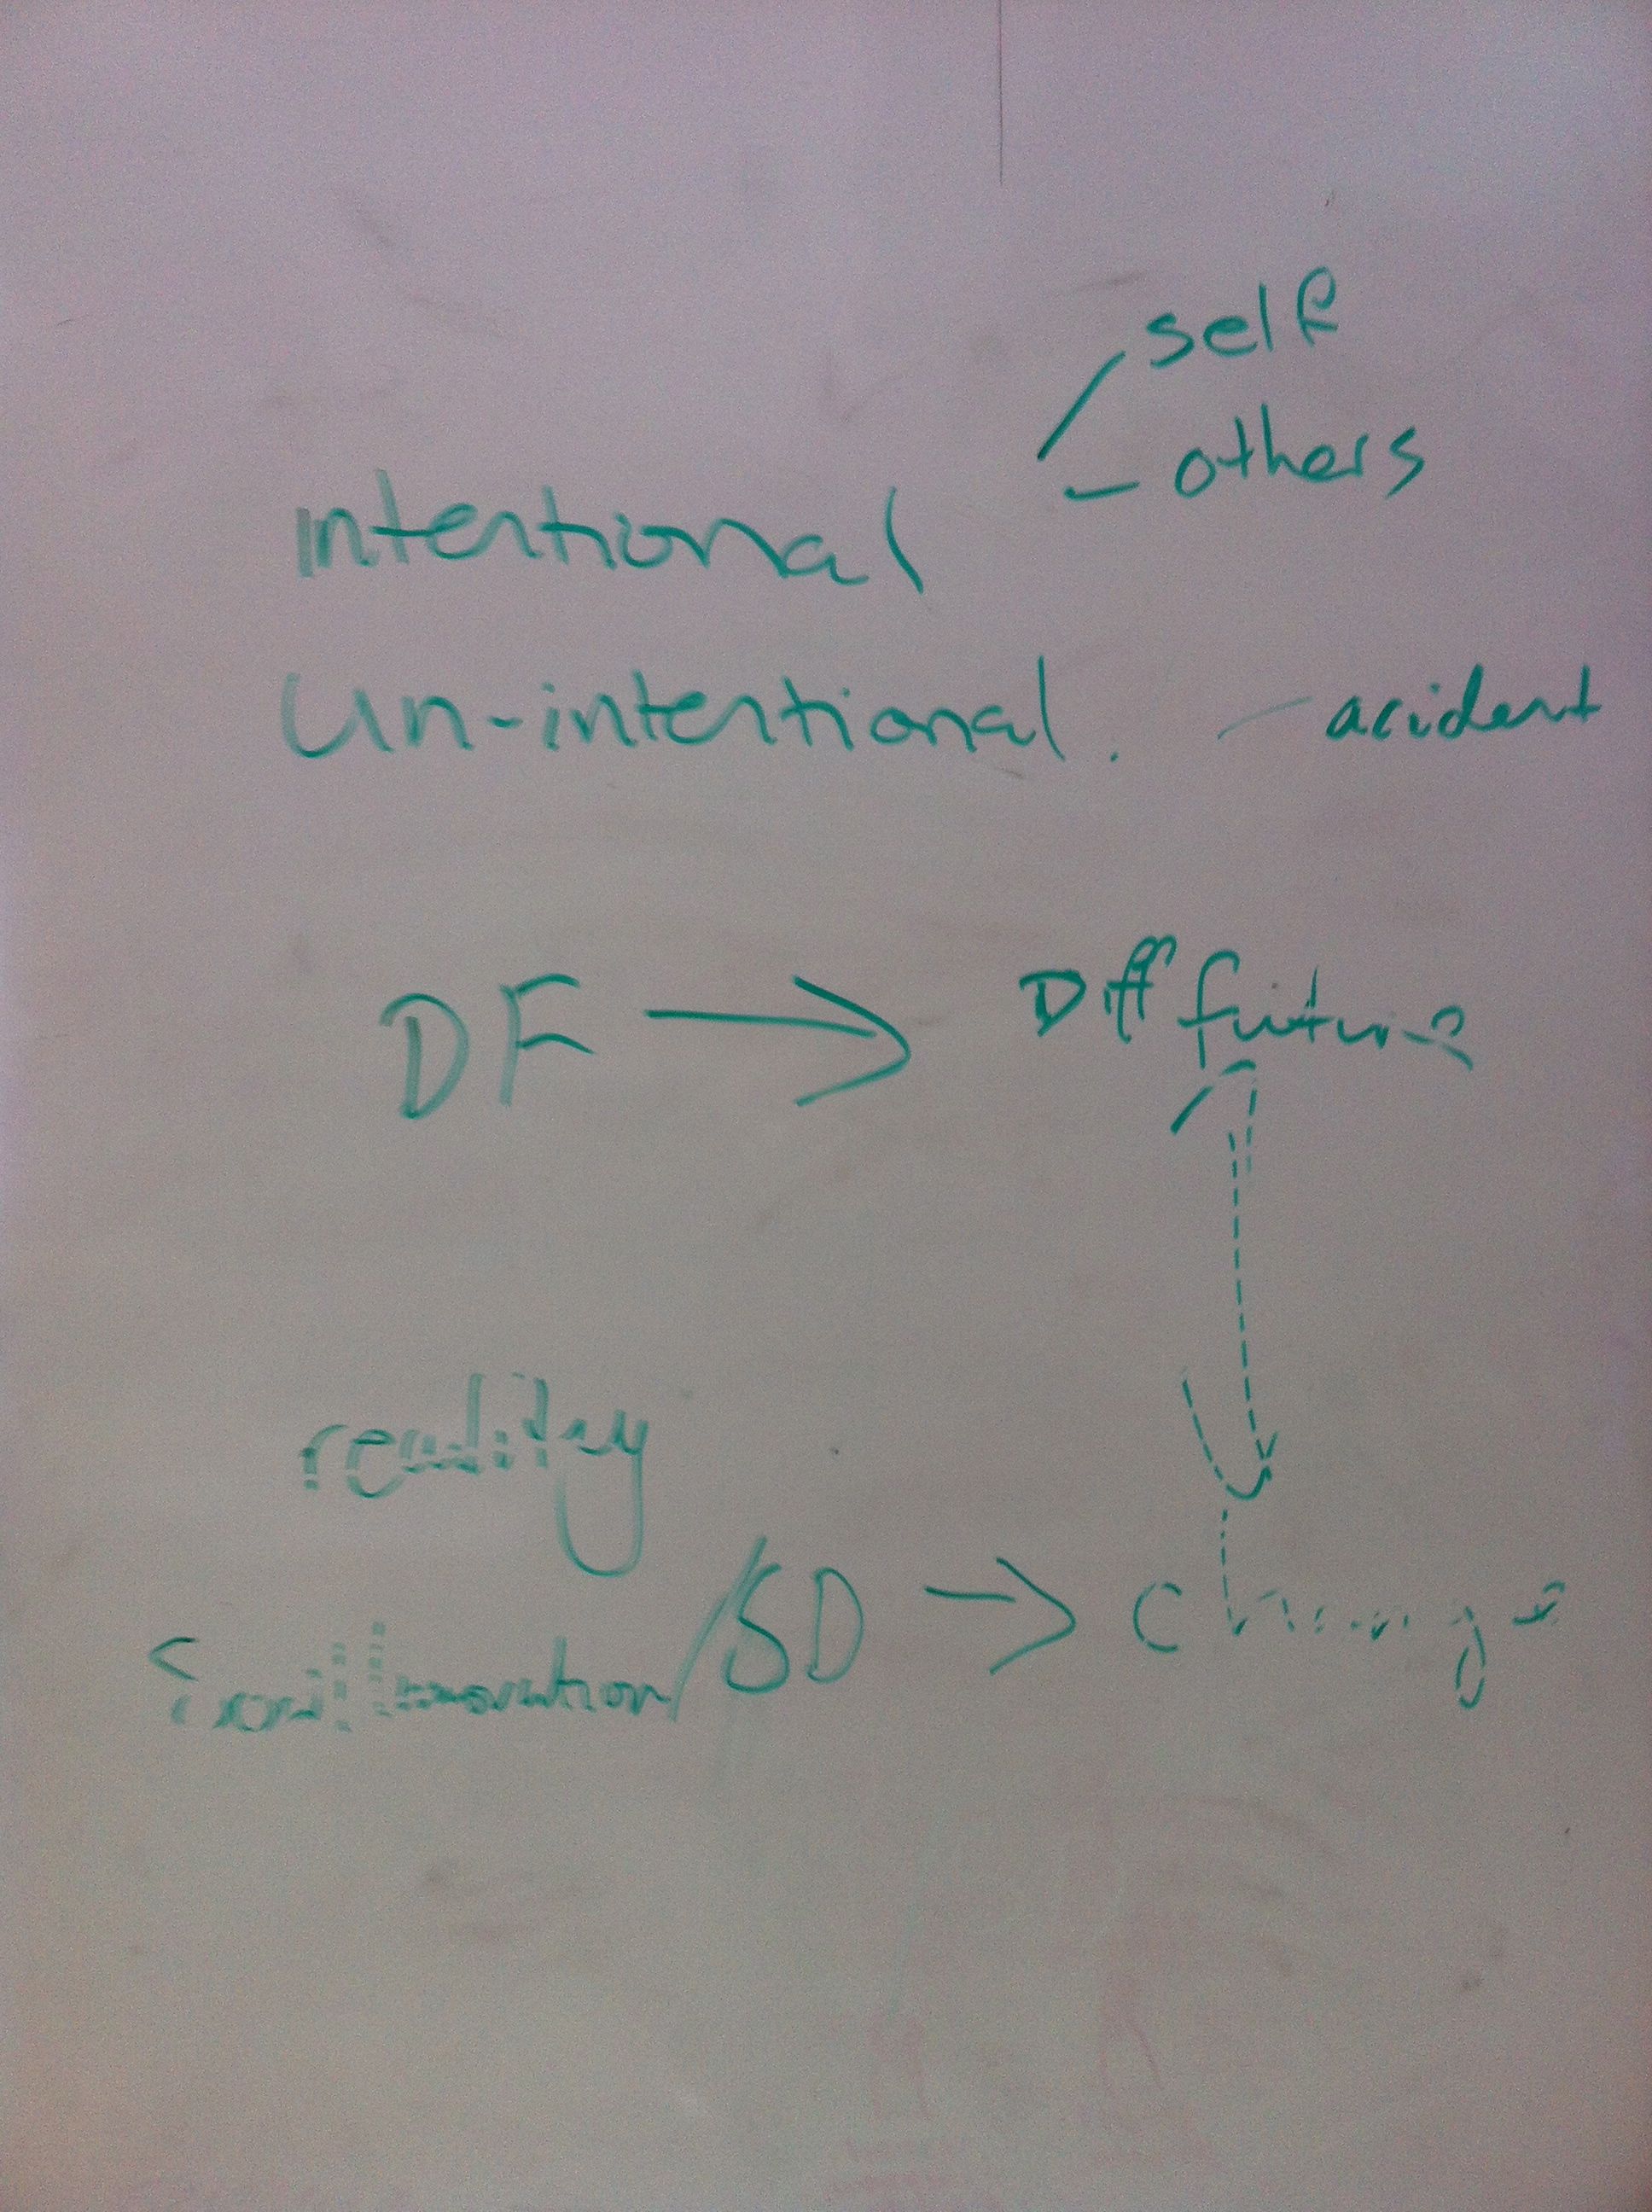 self
others
intentional
un-intentional. - acident
DF → Diff future
reality
Social Innovation/SD → Change